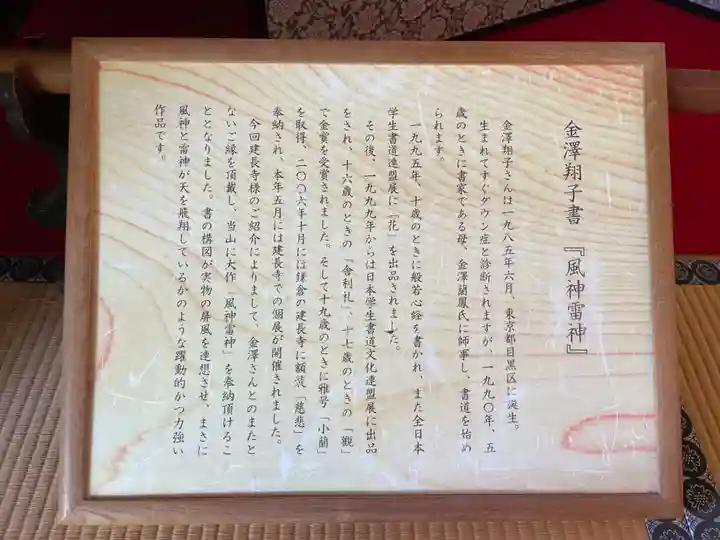 金澤翔子書 『風神雷神』
金澤翔子さんは一九八五年六月、東京都目黒区に誕生。
生まれてすぐダウン症と診断されますが、一九九〇年、五
歳のときに書家である母、金澤蘭鳳氏に師事し、書道を始め
られます。
一九九五年、十歳のときに般若心経を書かれ、また全日本
学生書道連盟展に「花」を出品されました。
その後、一九九九年からは日本学生書道文化連盟展に出品
をされ、十六歳のときの「舎利礼」、十七歳のときの「観」
で金賞を受賞されました。そして十九歳のときに雅号「小蘭」
を取得、二〇〇六年十月には鎌倉の建長寺に額装「慈悲」を
奉納され、本年五月には建長寺での個展が開催されました。
今回建長寺様のご紹介によりまして、金澤さんとのまたと
ないご縁を頂戴し、当山に大作「風神雷神」を奉納頂けるこ
ととなりました。書の構図が実物の屏風を連想させ、まさに
風神と雷神が天を飛翔しているかのような躍動的かつ力強い
作品です。